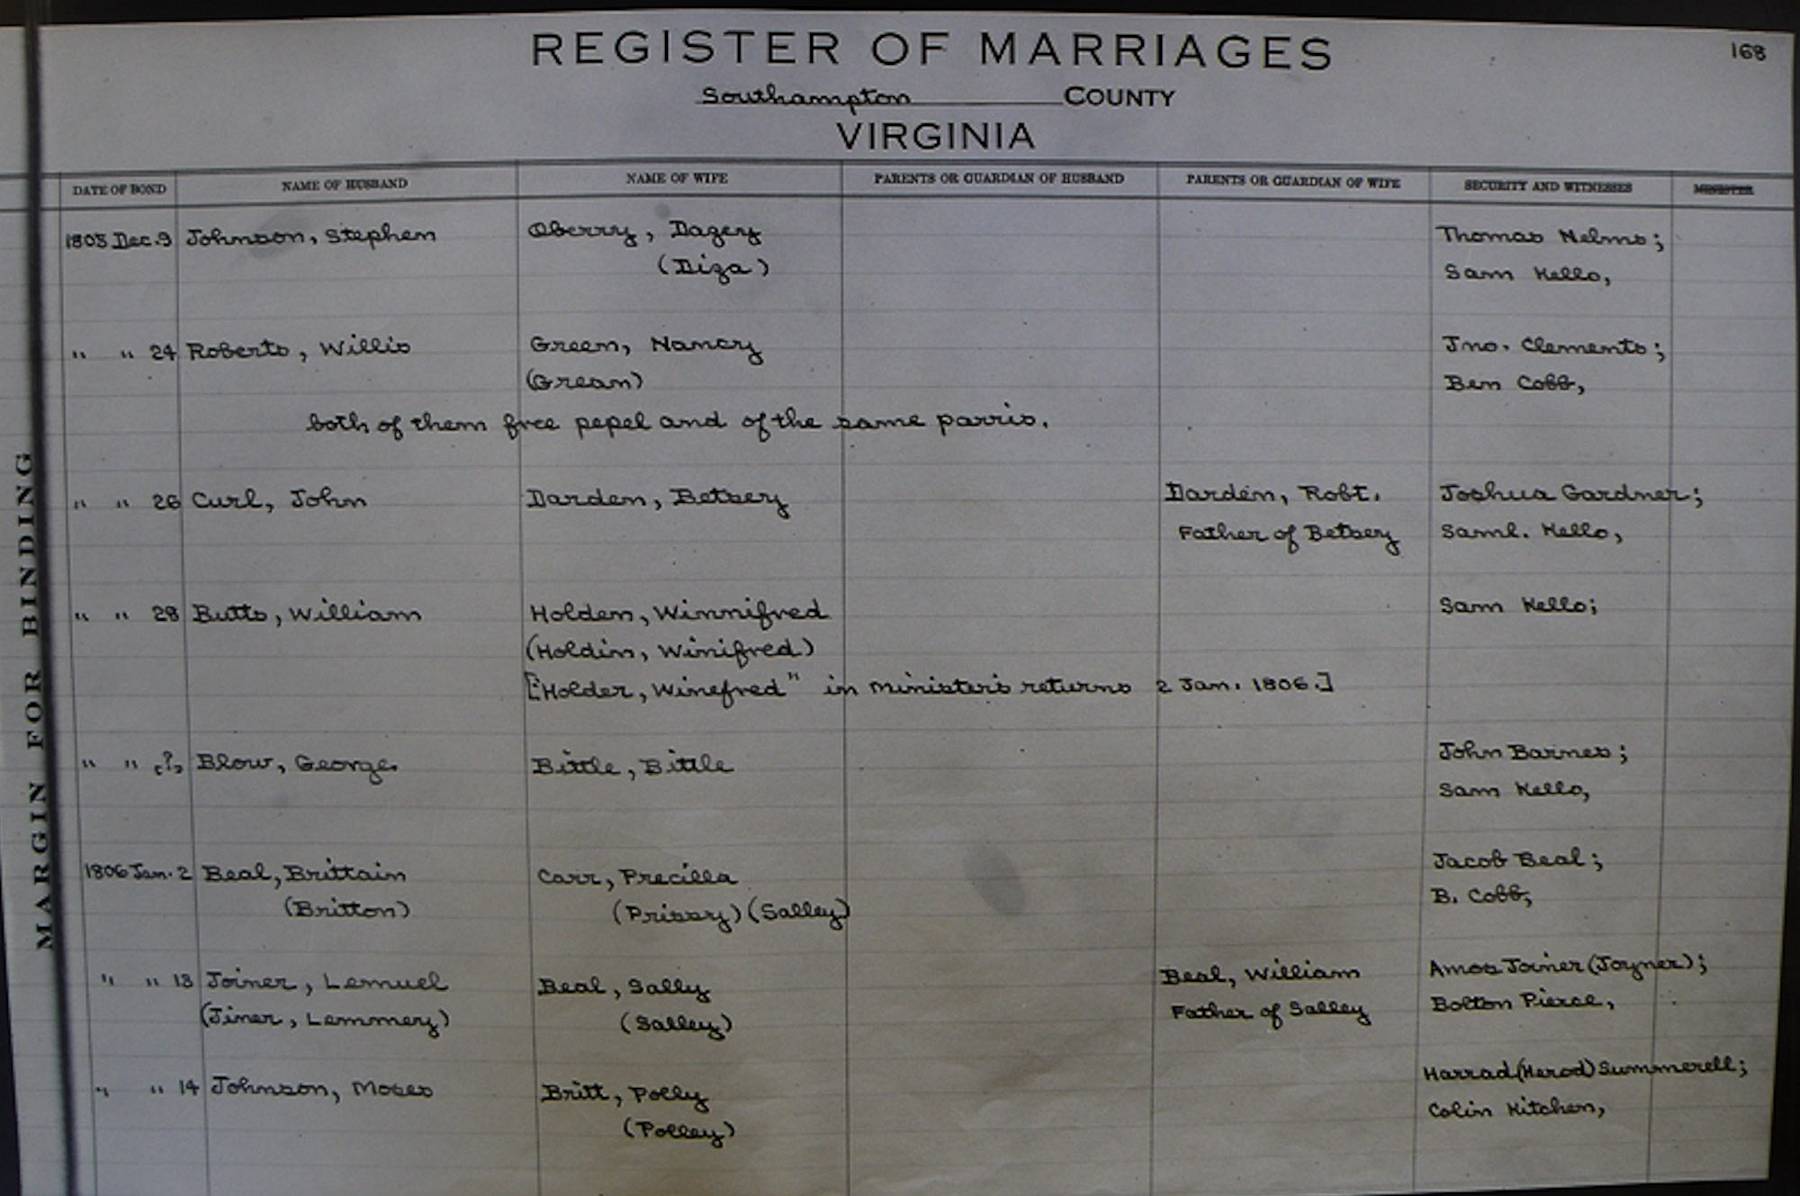 REGISTER OF MARRIAGES
168
Southampton COUNTY
VIRGINIA
DATE OF BOND NAME OF HUSBAND NAME OF WIFE PARENTS OR GUARDIAN OF HUSBAND PARENTS OR GUARDIAN OF WIFE SECURITY AND WITNESSES MINISTER
1805 Dec. 9 Johnson, Stephen Oberry, Dazey Thomas Nelms;
(Diza) Sam Kello,
" " 24 Roberts, Willis Green, Nancy Jno. Clements;
(Grean) Ben Cobb,
both of them free pepel and of the same parris.
" " 26 Curl, John Darden, Betsey Darden, Robt. Joshua Gardner;
Father of Betsey Saml. Kello,
" " 28 Butts, William Holden, Winnifred Sam Kello;
(Holdin, Winifred)
["Holder, Winefred" in minister's returns 2 Jan. 1806.]
" " [?] Blow, George Bittle, Bittle John Barnes;
Sam Kello,
1806 Jan. 2 Beal, Brittain Carr, Precilla Jacob Beal;
(Britton) (Prissy) (Salley) B. Cobb,
" " 13 Joiner, Lemuel Beal, Sally Beal, William Amos Joiner (Joyner);
(Jiner, Lemmery) (Salley) Father of Salley Bolton Pierce,
" " 14 Johnson, Moses Britt, Polly Harrad (Herod) Summerell;
(Polley) Colin Kitchen,
MARGIN FOR BINDING